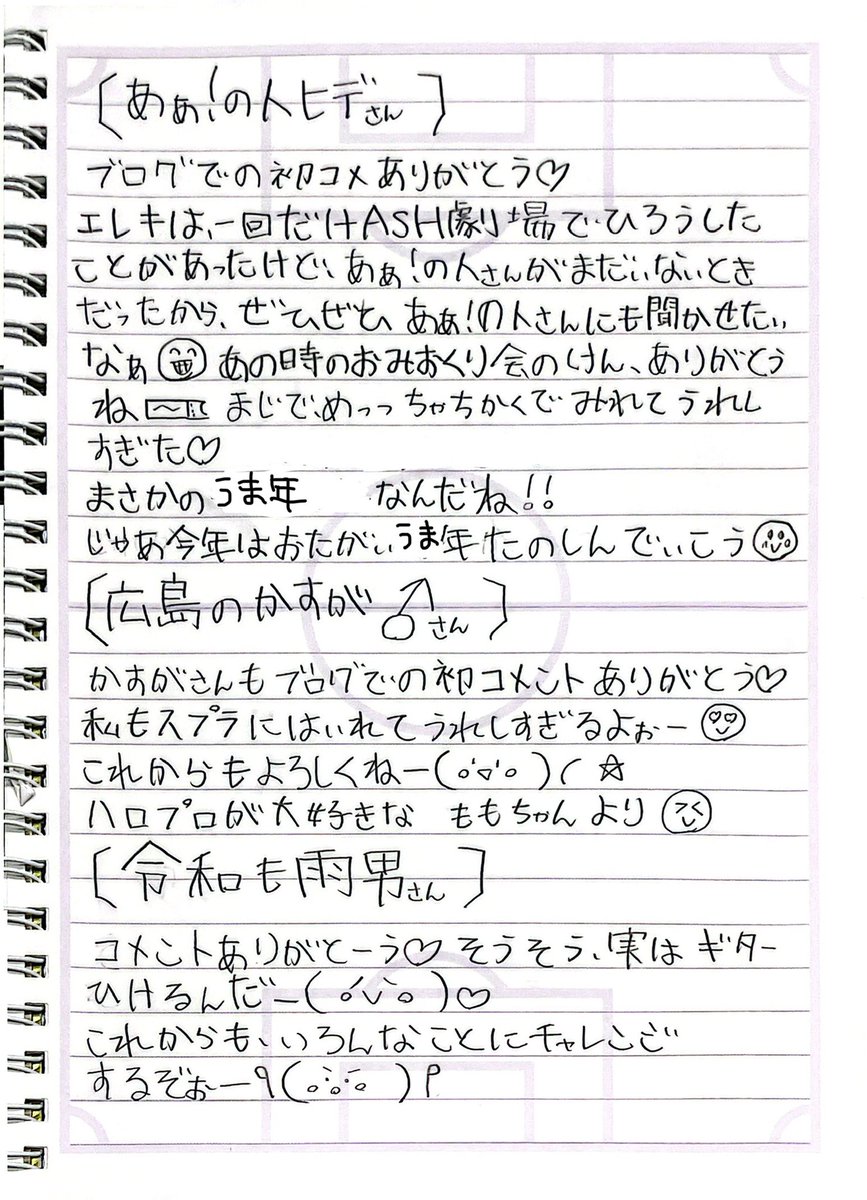 [あぁ!の人ヒデさん]
ブログでの初コメありがとう♡
エレキは、一回だけASH劇場でひろうした
ことがあったけど、あぁ!の人さんがまだいないとき
だったから、ぜひぜひ あぁ!の人さんにも聞かせたい
なぁ あの時のおみおくり会のけん、ありがとう
ね まじで、めっっちゃちかくでみれてうれし
すぎた♡
まさかのうま年 なんだね!!
じゃあ今年はおたがいうま年たのしんでいこう
[広島のかすが♂さん]
かすがさんもブログでの初コメントありがとう♡
私もスプラにはいれてうれしすぎるよぉー
これからもよろしくねー(o'▽'o)ノ☆
ハロプロが大好きな ももちゃんより
[令和も雨男さん]
コメントありがとーう♡そうそう、実はギター
ひけるんだー(o'∨'o)♡
これからも、いろんなことにチャレンジ
するぞぉー9(o'o'o)P